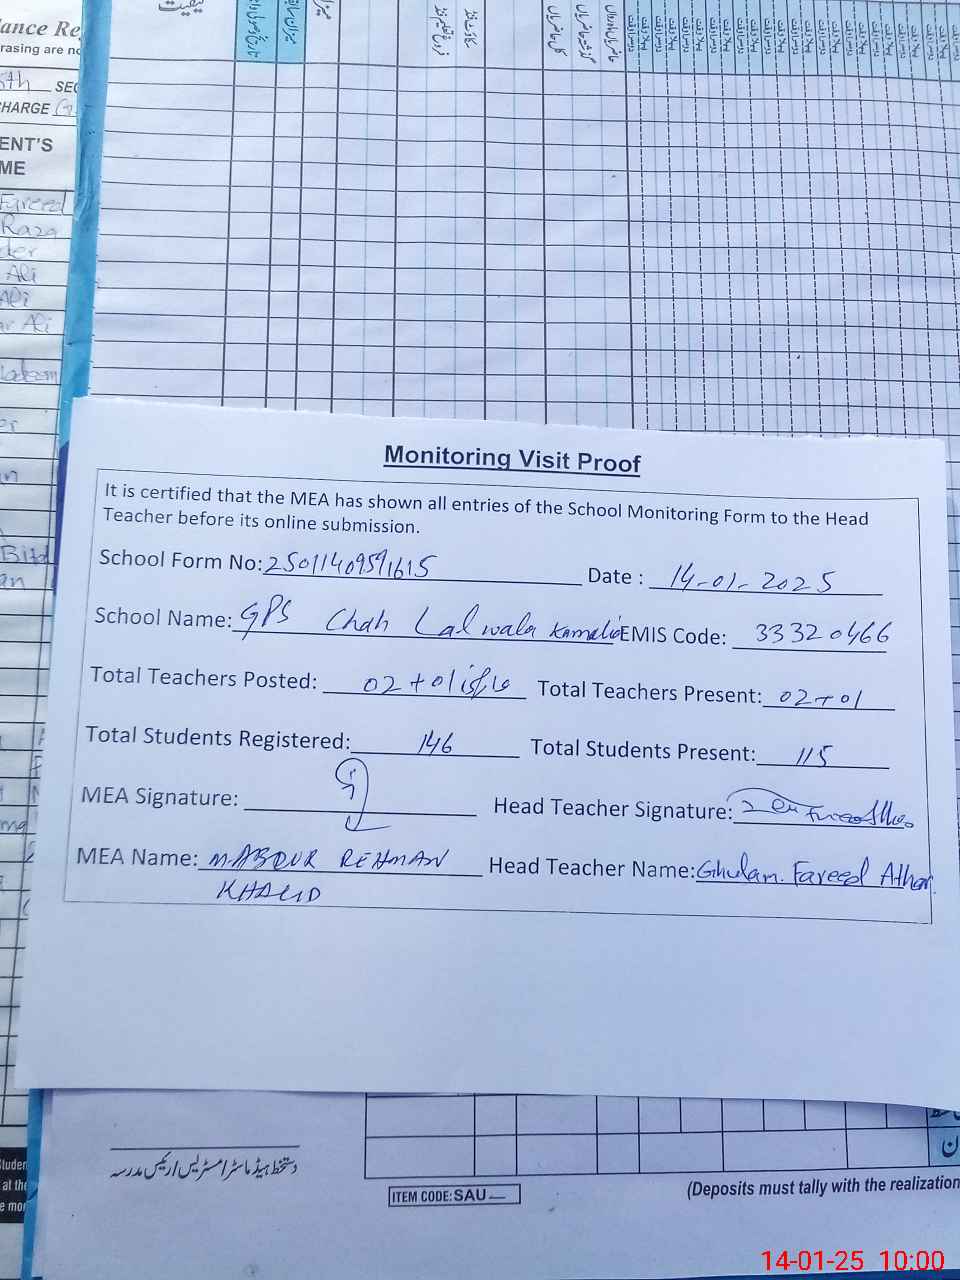 ance Re
rasing are no
5th SEC
HARGE G
ENT'S
ME
Fareed
Raza
der
Ali
Ali
ar Ali
Nadeem
er
n
Bitd
an
کیفیت
میزان
سکاوٹ فنڈ
فروغ تعلیم فنڈ
کل حاضریاں
گذشتہ حاضریاں
حاضریاں دوران
Monitoring Visit Proof
It is certified that the MEA has shown all entries of the School Monitoring Form to the Head
Teacher before its online submission.
School Form No: 25011409591615 Date : 14-01-2025
School Name: GPS Chah Lal wala Kamalia EMIS Code: 33320466
Total Teachers Posted: 02 + 01 Total Teachers Present: 02 + 01
Total Students Registered: 146 Total Students Present: 115
MEA Signature: Head Teacher Signature:
MEA Name: M. ABDUR REHMAN Head Teacher Name: Ghulam. Fareed Athar
KHALID
دستخط ہیڈ ماسٹر / مسٹریس / رئیس مدرسہ
ITEM CODE: SAU
(Deposits must tally with the realization
Studen
at the
e mor
14-01-25 10:00